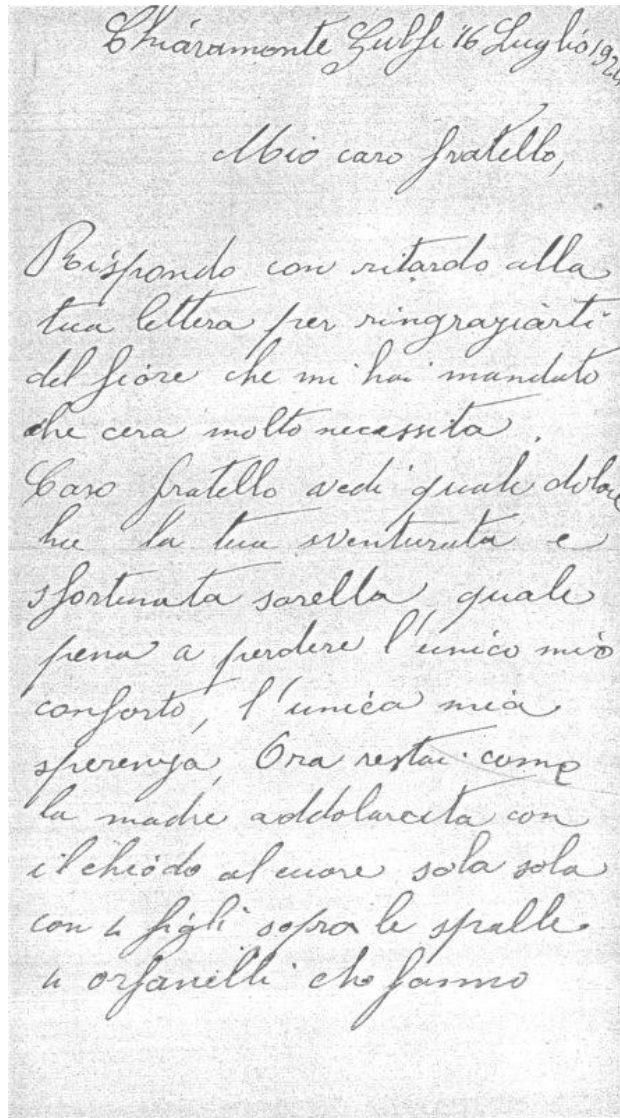 Chiaramonte Gulfi 16 Luglio
Mio caro fratello,
Rispondo con ritardo alla
tua lettera per ringraziarti
del fiore che mi hai mandato
che cera molto necessita.
Caro fratello vedi quale dolore
ha la tua sventurata e
sfortunata sorella, quale
pena a perdere l'unico mio
conforto, l'unica mia
sperenza, Ora restai come
la madre addolarcita con
il chiodo al cuore sola sola
con 4 figli sopra le spalle
4 orfanelli che fanno